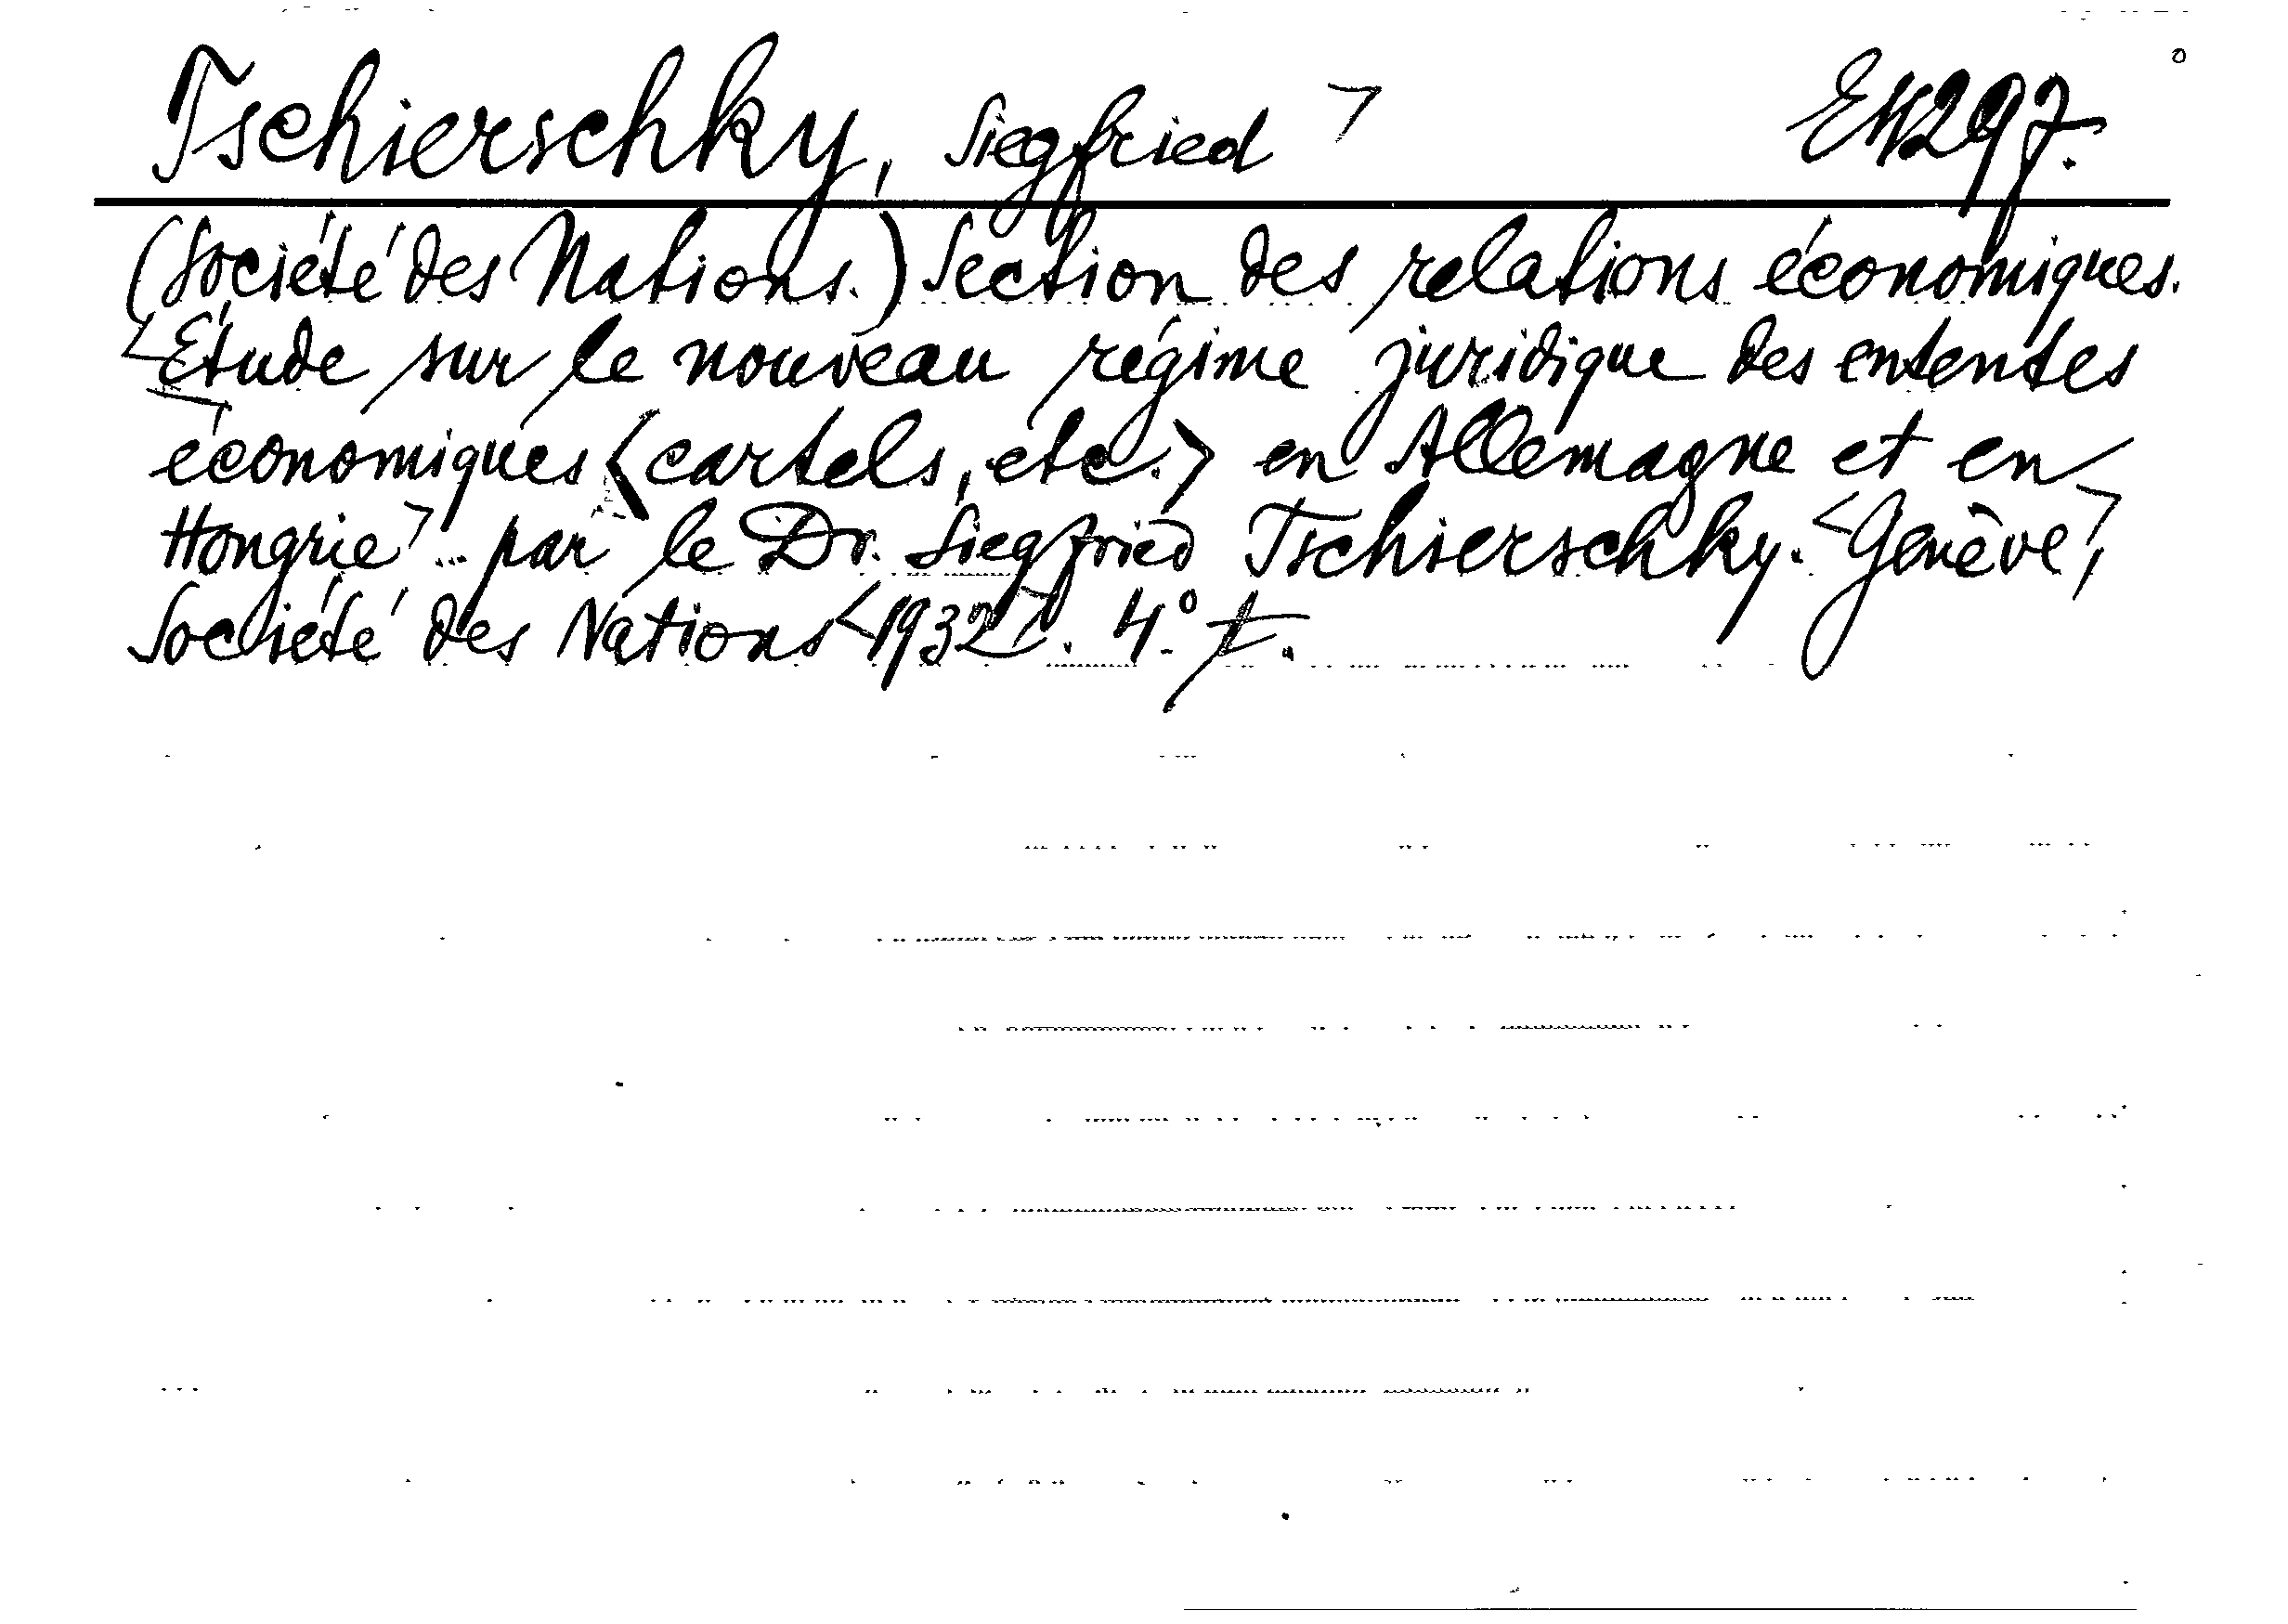 Tschierschky, Siegfried > EW297.
(Société des Nations.) Section des relations économiques.
<Étude sur le nouveau régime juridique des ententes
économiques <cartels, etc.> en Allemagne et en
Hongrie> par le Dr. Siegfried Tschierschky. <Genève>,
Société des Nations <1932>. 4° t.